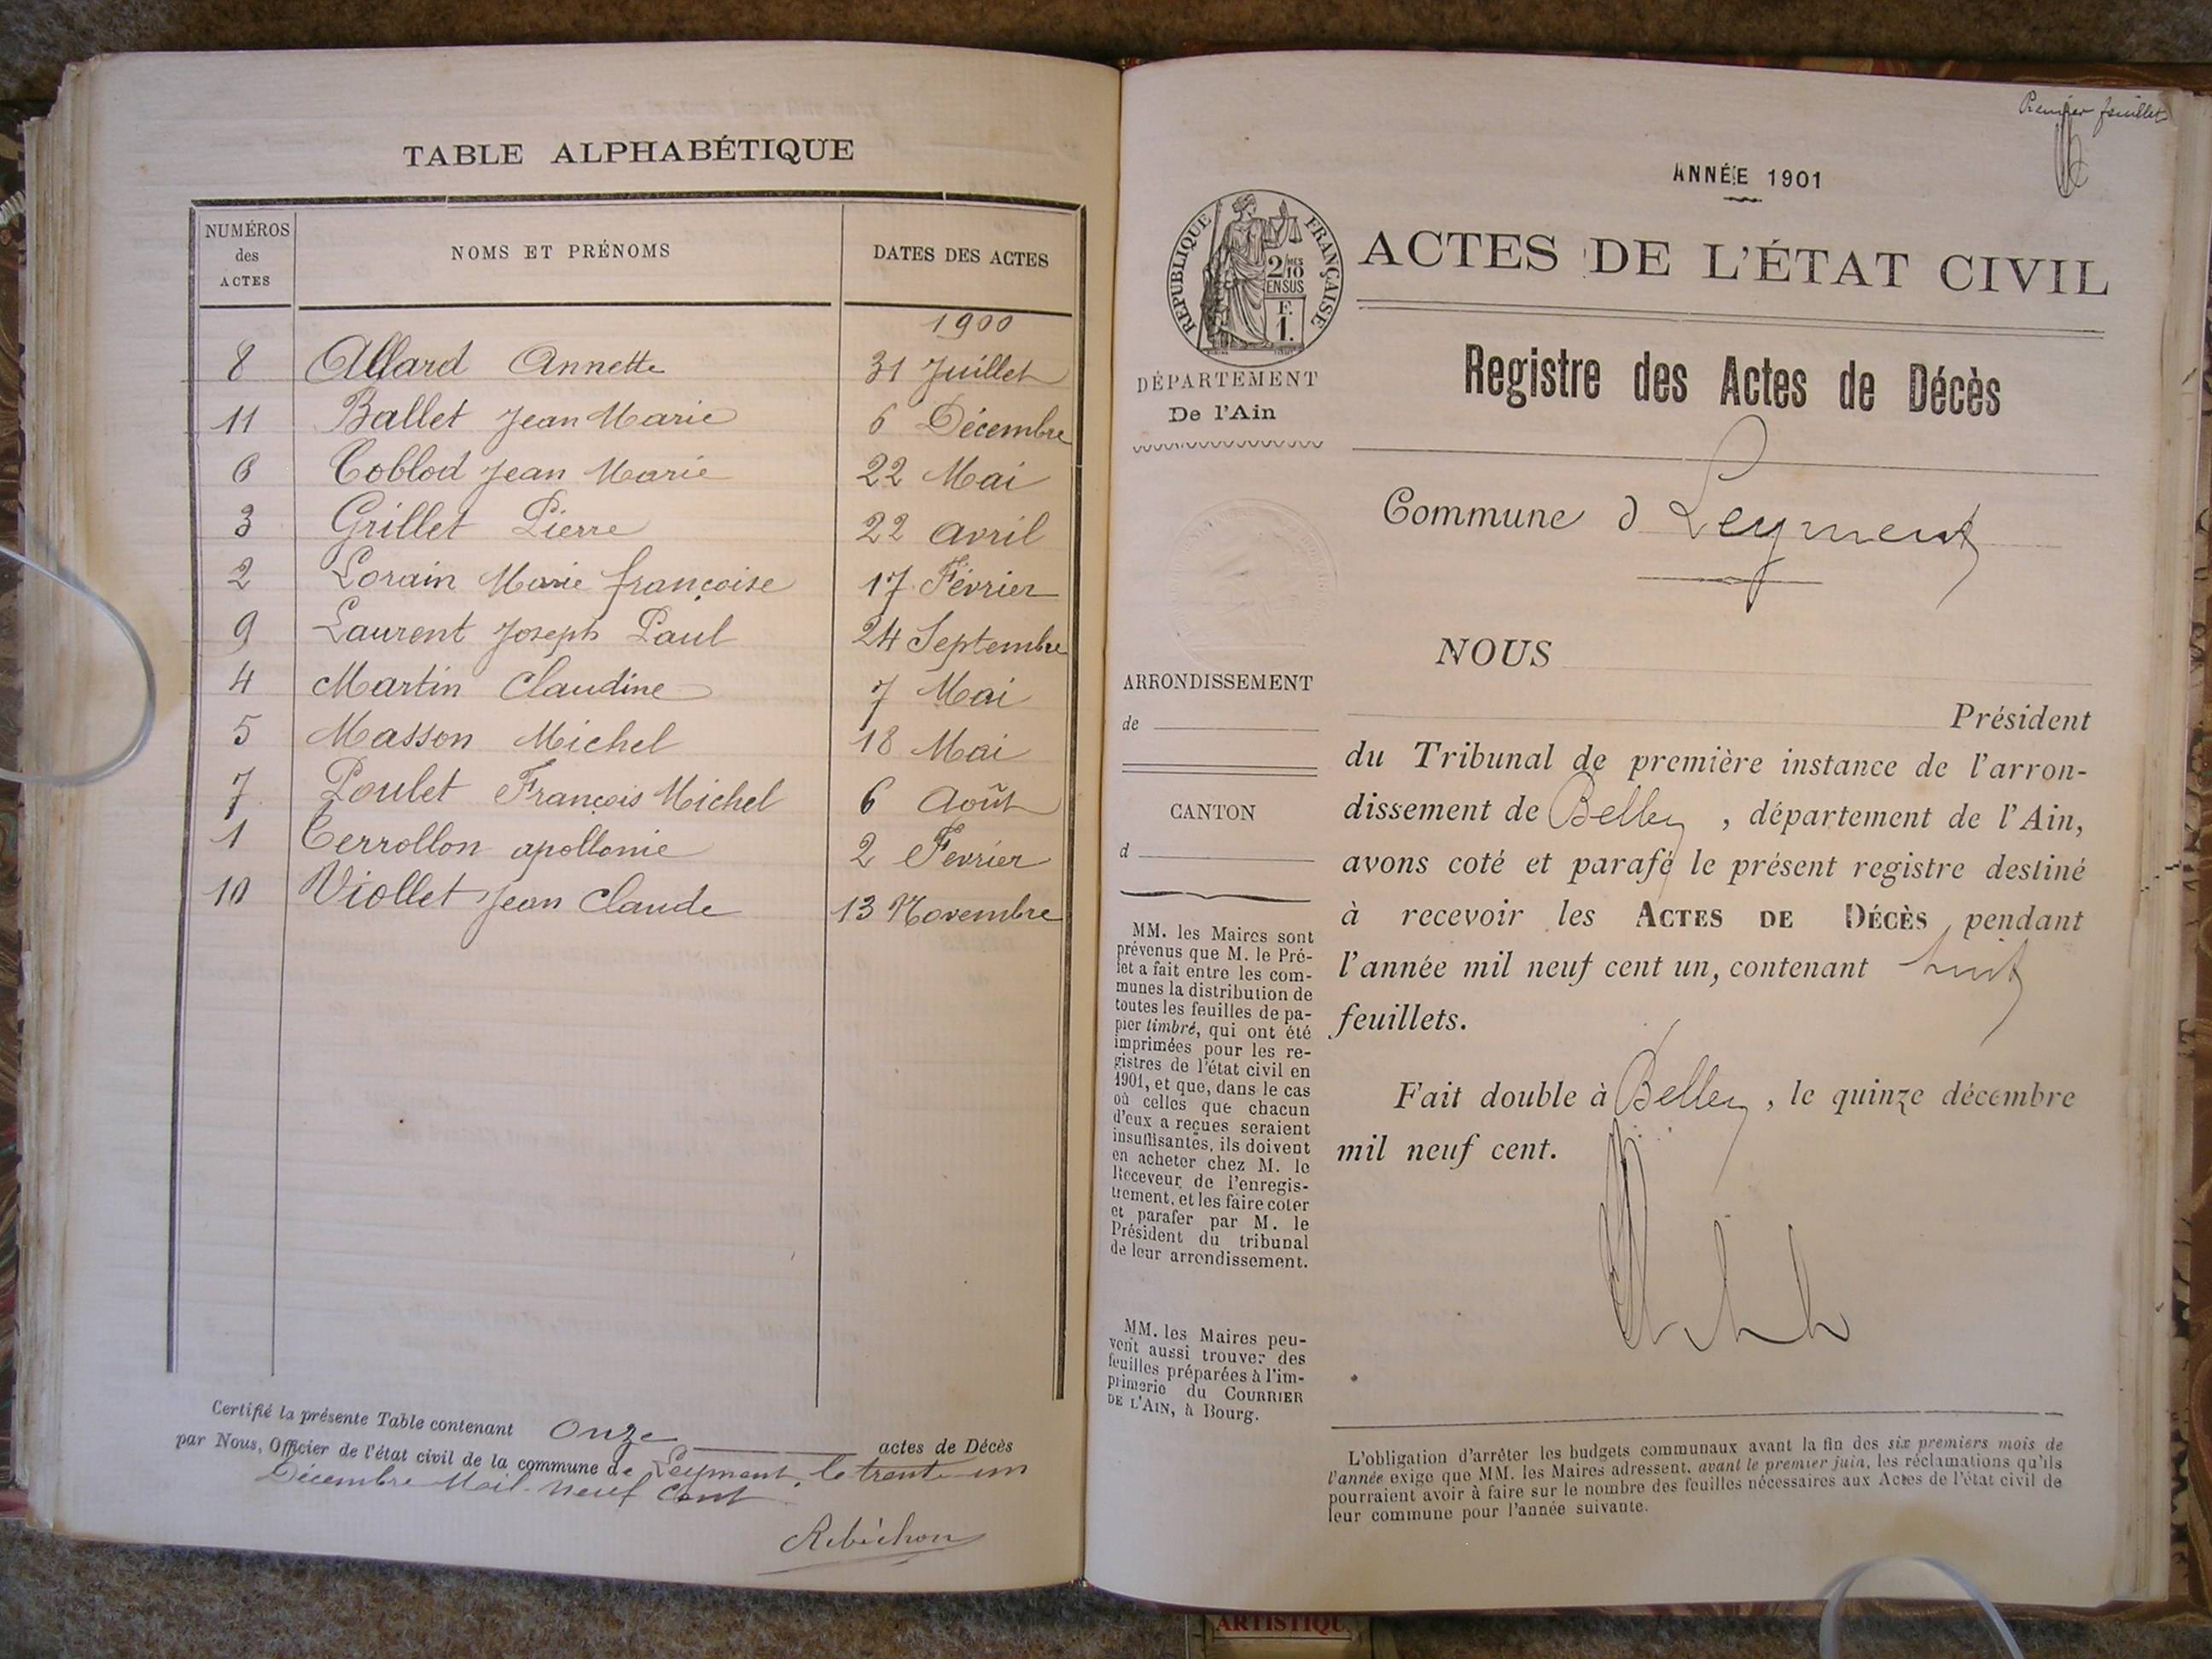 TABLE ALPHABÉTIQUE
NUMÉROS des ACTES
NOMS ET PRÉNOMS
DATES DES ACTES
1900
8 Allard Annette 31 Juillet
11 Ballet Jean Marie 6 Décembre
6 Coblod Jean Marie 22 Mai
3 Grillet Pierre 22 avril
2 Lorain Marie françoise 17 Février
9 Laurent Joseph Paul 24 Septembre
4 Martin Claudine 7 Mai
5 Masson Michel 18 Mai
7 Poulet François Michel 6 Août
1 Terrollon apollonie 2 Fevrier
10 Viollet Jean Claude 13 Novembre
Certifié la présente Table contenant Onze actes de Décès
par Nous, Officier de l'état civil de la commune de Leyment, le trente un
Décembre Mil neuf Cent
Rebichon
Premier feuillet
ANNÉE 1901
ACTES DE L'ÉTAT CIVIL
RÉPUBLIQUE FRANÇAISE
2/10 MES
EN SUS
F.
1.
DÉPARTEMENT
De l'Ain
Registre des Actes de Décès
Commune d Leyment
ARRONDISSEMENT
de
CANTON
d
MM. les Maires sont
prévenus que M. le Pré-
fet a fait entre les com-
munes la distribution de
toutes les feuilles de pa-
pier timbré, qui ont été
imprimées pour les re-
gistres de l'état civil en
1901, et que, dans le cas
où celles que chacun
d'eux a reçues seraient
insuffisantes, ils doivent
en acheter chez M. le
Receveur de l'enregis-
trement, et les faire coter
et parafer par M. le
Président du tribunal
de leur arrondissement.
MM. les Maires peu-
vent aussi trouver des
feuilles préparées à l'im-
primerie du COURRIER
DE L'AIN, à Bourg.
NOUS
Président
du Tribunal de première instance de l'arron-
dissement de Belley, département de l'Ain,
avons coté et parafé le présent registre destiné
à recevoir les ACTES DE DÉCÈS pendant
l'année mil neuf cent un, contenant huit
feuillets.
Fait double à Belley, le quinze décembre
mil neuf cent.
L'obligation d'arrêter les budgets communaux avant la fin des six premiers mois de
l'année exige que MM. les Maires adressent, avant le premier juin, les réclamations qu'ils
pourraient avoir à faire sur le nombre des feuilles nécessaires aux Actes de l'état civil de
leur commune pour l'année suivante.
ARTISTIQU